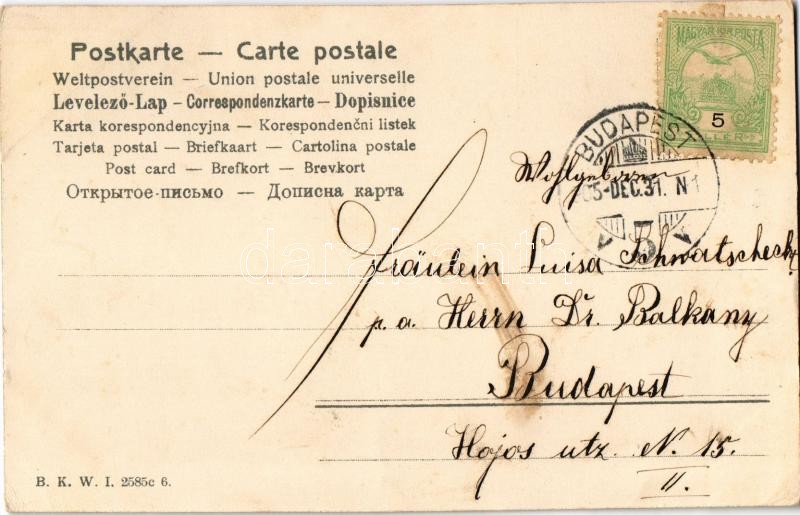 Postkarte — Carte postale
Weltpostverein — Union postale universelle
Levelező-Lap – Correspondenzkarte – Dopisnice
Karta korespondencyjna — Korespondenční listek
Tarjeta postal — Briefkaart — Cartolina postale
Post card — Brefkort — Brevkort
Открытое-письмо — Дописна карта
MAGYAR KIR. POSTA
5
FILLER
BUDAPEST
05-DEC.31. N1
V 5 V
Wohlgeboren
Fräulein Luisa Schwatschek
p. a. Herrn Dr. Balkany
Budapest
Hajos utz. N. 15.
II.
B. K. W. I. 2585c 6.